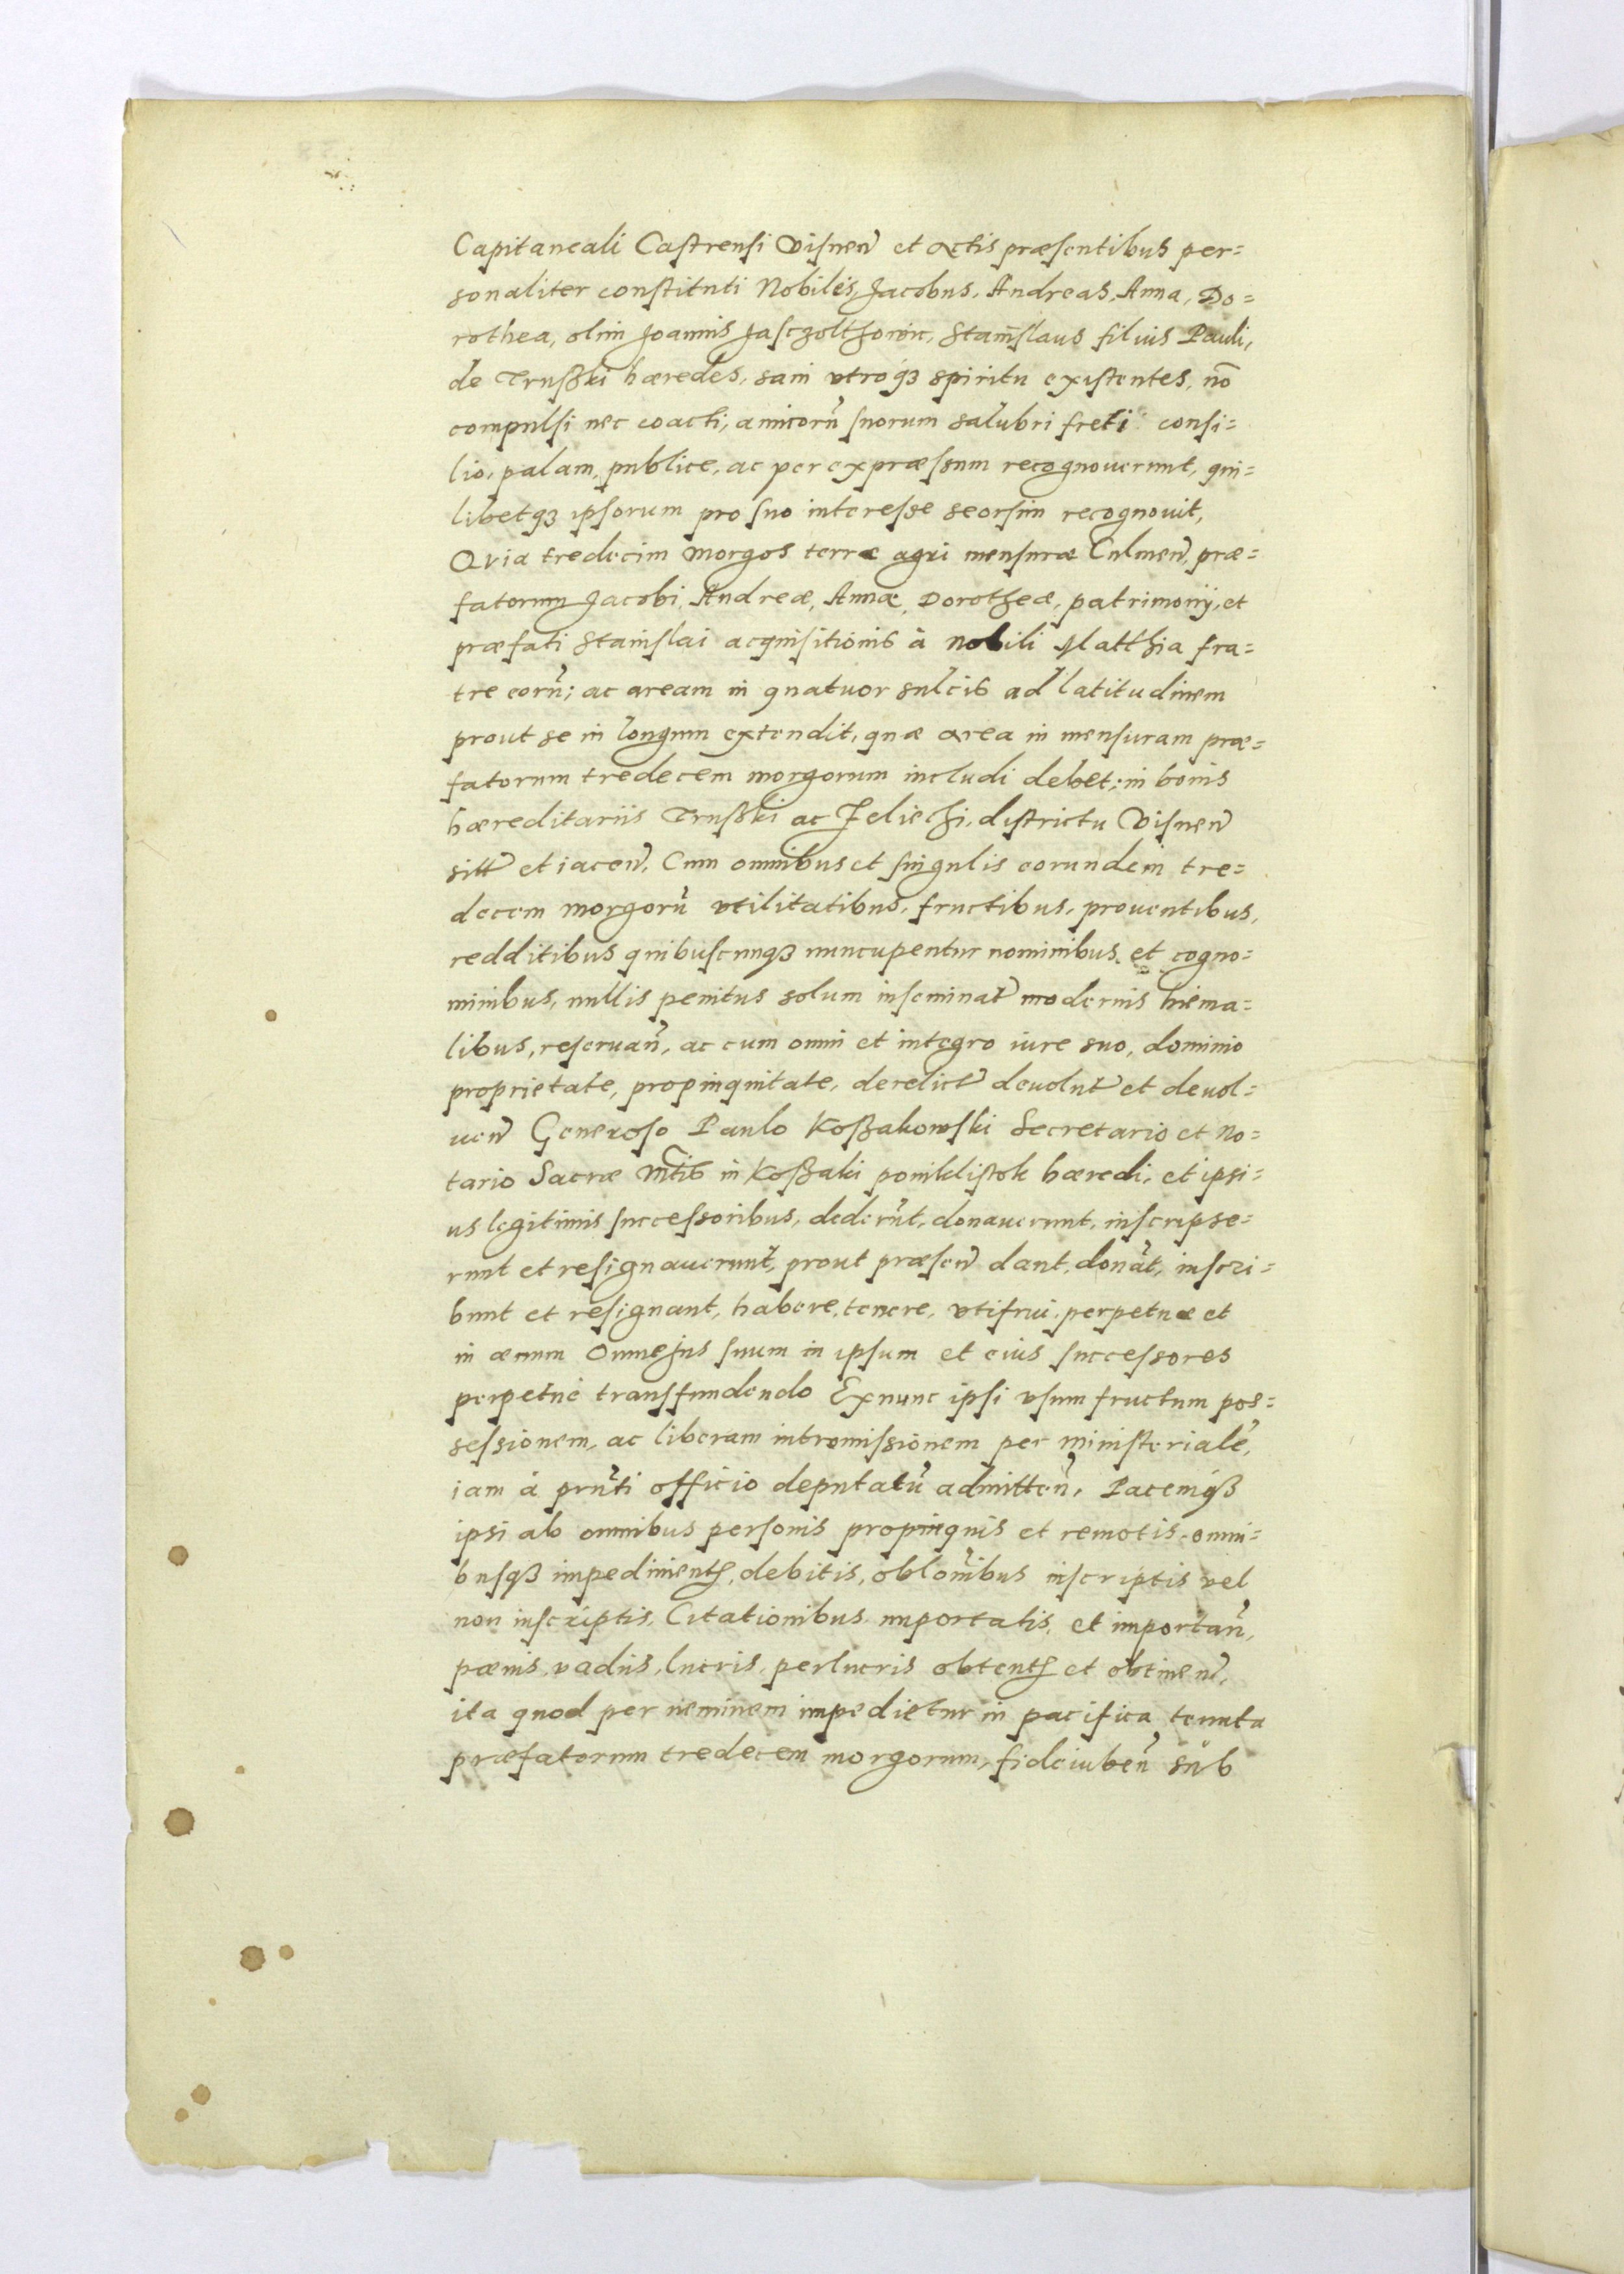 Capitaneali Castrensi Visnen et Actis præsentibus per=
sonaliter constituti Nobiles, Jacobus, Andreas, Anna, Do=
rothea, olim Joannis Jasczolthowic, Stanislaus filius Pauli,
de Trusski hæredes, sani utroq3 spiritu existentes, nō
compulsi nec coacti, amicorū suorum salubri freti consi=
lio, palam, publice, ac per expræssum recognouerunt, qui=
libetq3 ipsorum pro suo interesse seorsim recognouit,
Quia tredecim morgos terræ agri mensuræ Culmen, præ=
fatorum Jacobi, Andreæ, Annæ, Dorotheæ, patrimonij, et
præfati Stanislai acquisitionis à nobili Matthia fra=
tre eorū; ac aream in quatuor sulcis ad latitudinem
prout se in longum extendit, quæ area in mensuram præ=
fatorum tredecem morgorum includi debet; in bonis
hæreditariis Trusski ac Jeliechi, districtu Visnen
sitt et iacen, Cum omnibus et singulis eorundem tre=
decem morgorū utilitatibus, fructibus, prouentibus,
redditibus quibuscunq3 nuncupentur nominibus et cogno=
minibus, nullis penitus solum inseminat modernis hiema=
libus, reseruan, ac cum omni et integro iure suo, dominio
proprietate, propinquitate, derelict deuolut et deuol=
uen Generoso Paulo Kossakowski Secretario et No=
tario Sacræ Mtis in Kossaki ponikłistok hæredi, et ipsi=
us legitimis successoribus, dederūt, donauerunt, inscripse=
runt et resignauerunt, prout præsen dant, donāt, inscri=
bunt et resignant, habere, tenere, utifrui, perpetuæ et
in æuum Omne jus suum in ipsum et eius successores
perpetuè transfundendo Exnunc ipsi usum fructum pos=
sessionem, ac liberam intromissionem per ministerialē,
iam à prnti officio deputatū admitten, Pacemq3
ipsi ab omnibus personis propinquis et remotis, omni=
busq3 impediment, debitis, oblonibus inscriptis vel
non inscriptis, Citationibus, importatis, et importan,
pænis, vadiis, lucris, perlucris obtent et obtinen,
ita quod per neminem impedietur in pacifica tenuta
præfatorum tredecem morgorum, fideiuben sub